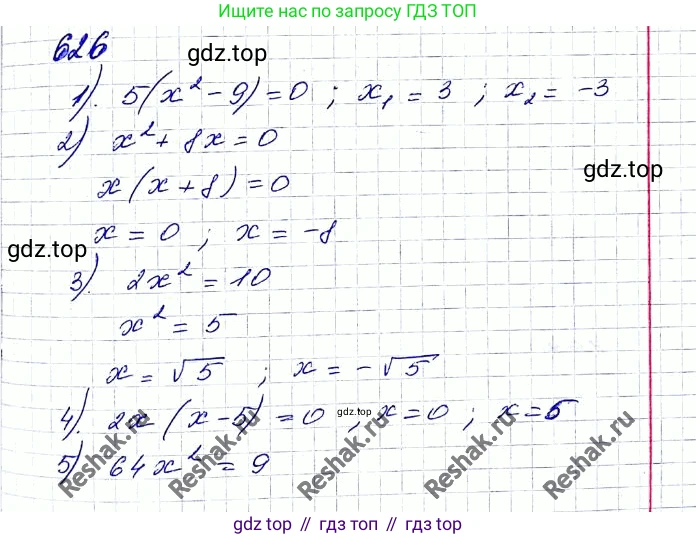 Ищите нас по запросу ГДЗ ТОП
626
gdz.top
1). 5(x² - 9) = 0 ; x₁ = 3 ; x₂ = -3
2) x² + 8x = 0
gdz.top
x(x + 8) = 0
x = 0 ; x = -8
gdz.top
3). 2x² = 10
x² = 5
x = √5 ; x = -√5
4). 2x (x - 5) = 0 ; x = 0 ; x = 5
gdz.top
5) 64x² = 9
Reshak.ru Reshak.ru Reshak.ru Reshak.ru Reshak.ru
gdz top // гдз топ // gdz top // гдз топ